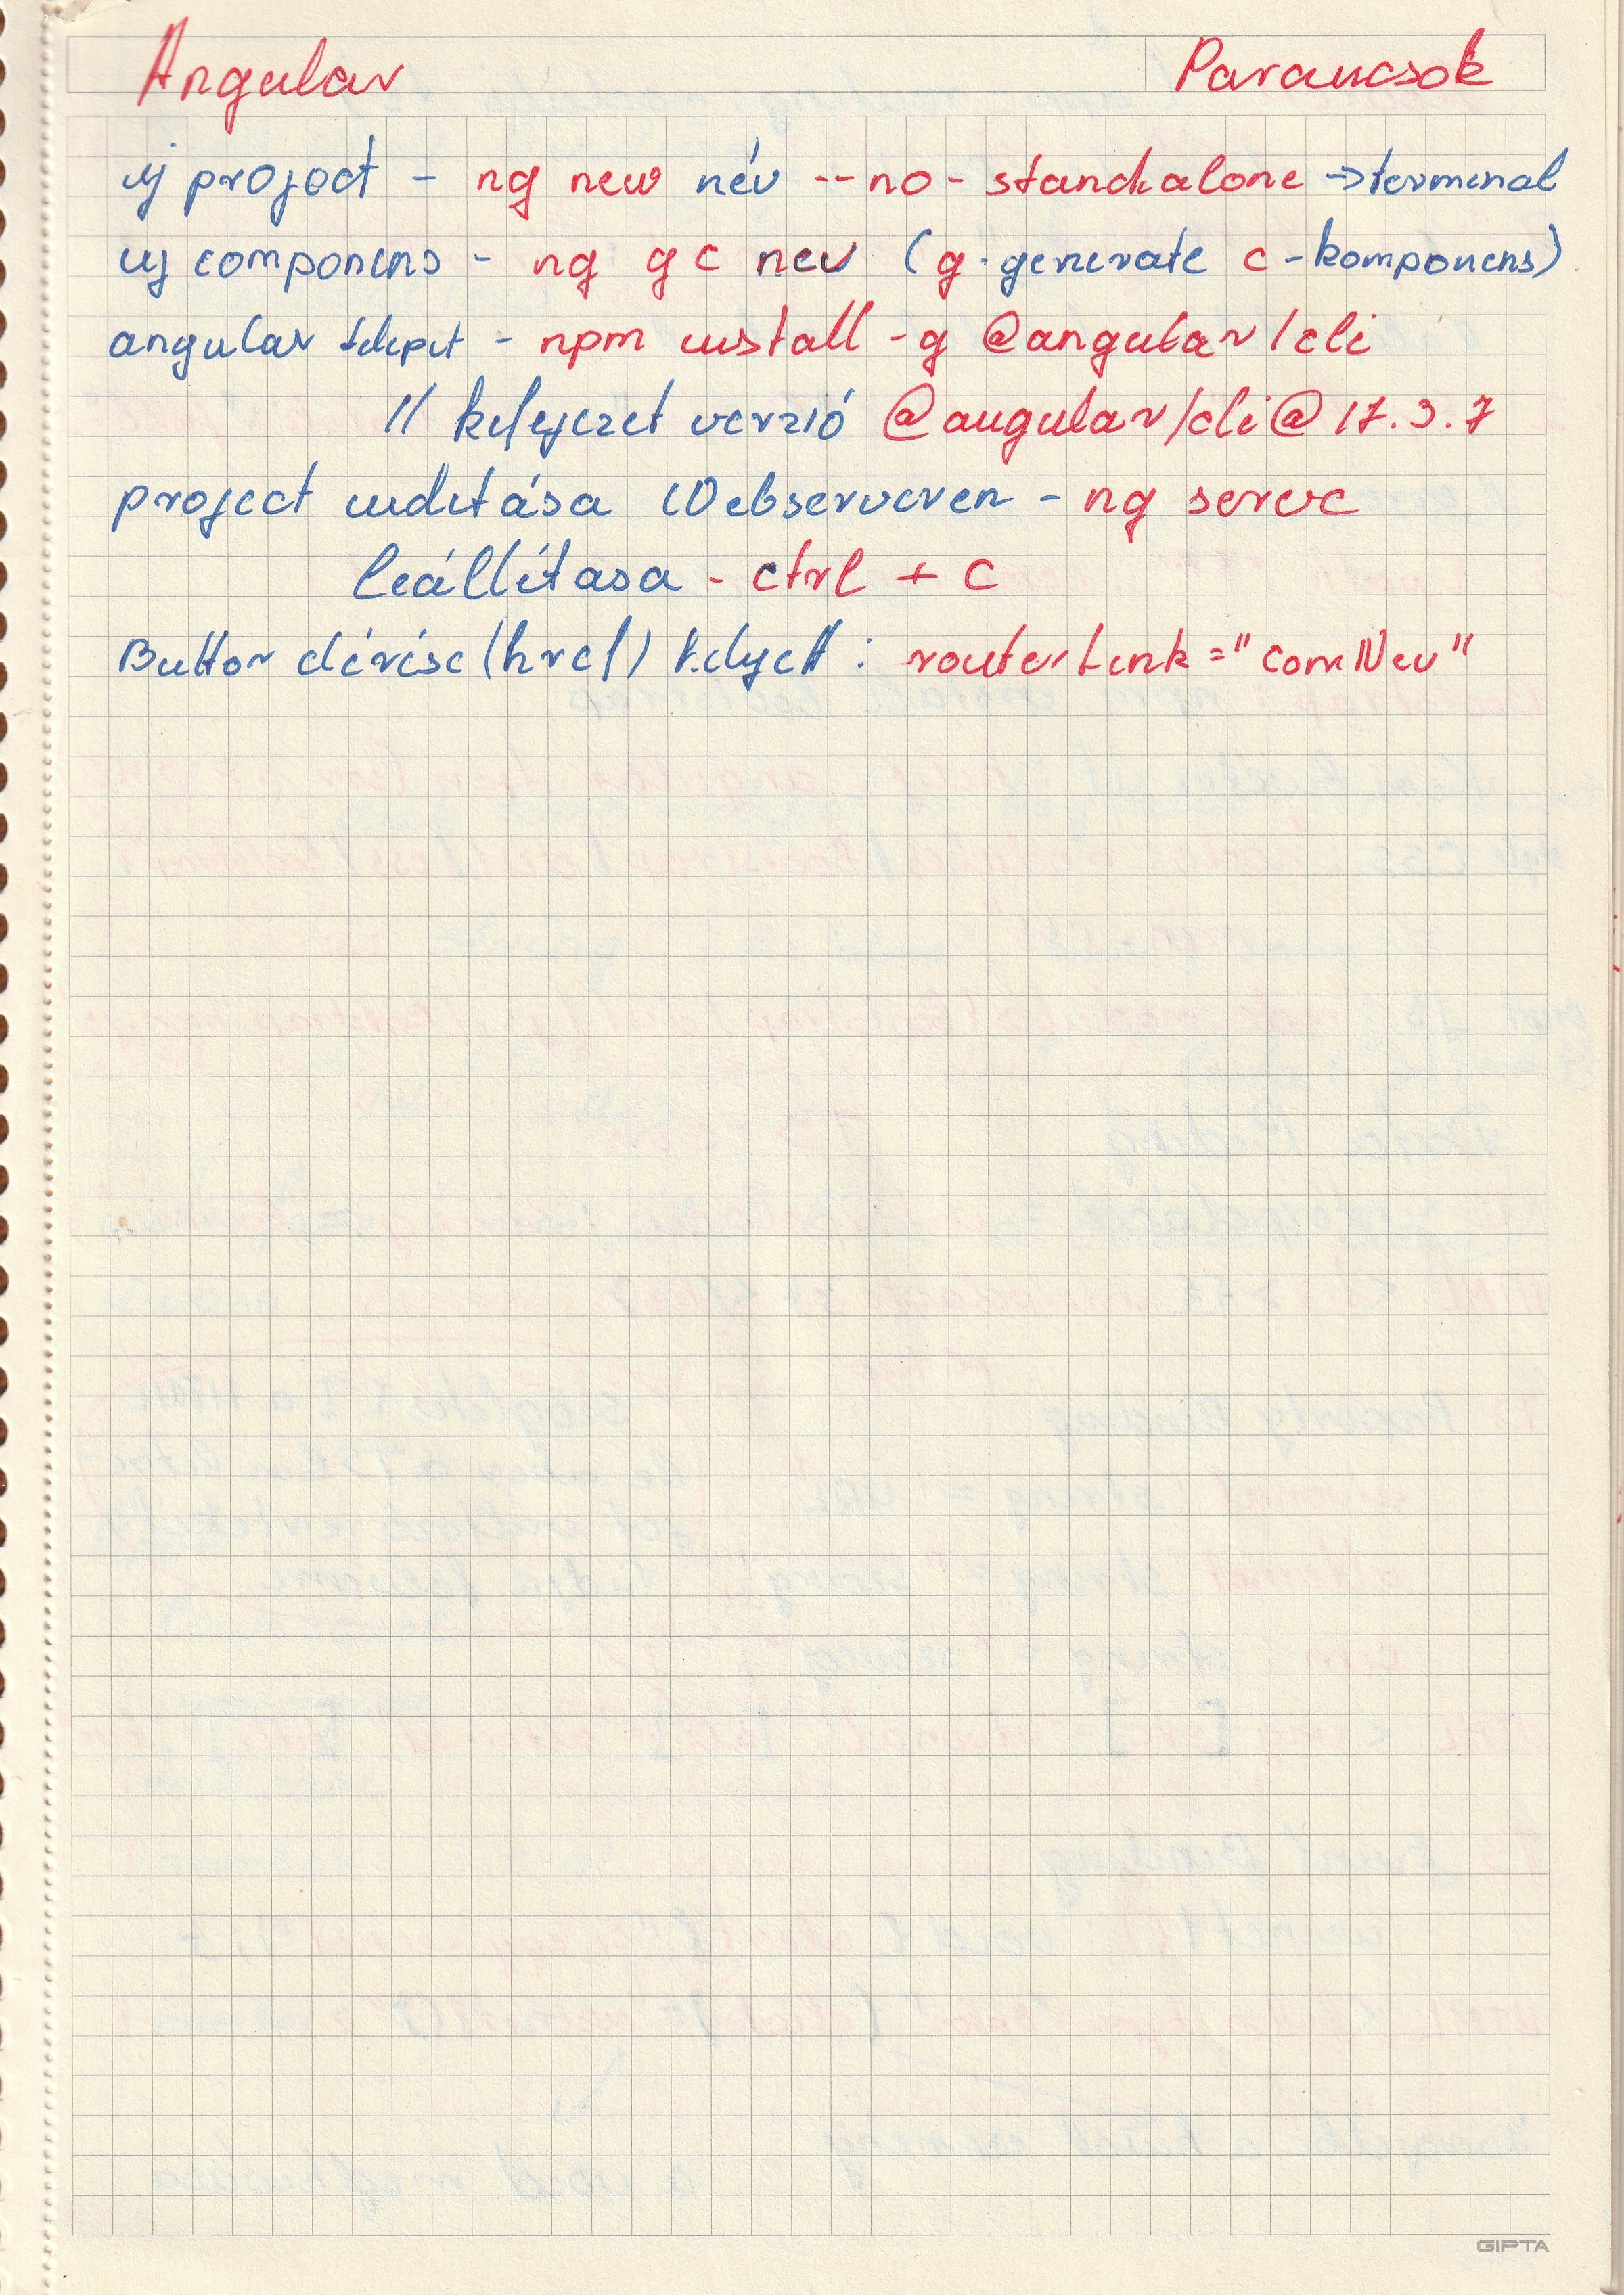 Angular Parancsok
új project - ng new név --no-standalone → terminal
uj componens - ng g c nev (g-generate c-komponens)
angular telepit - npm install -g @angular/cli
// kifejezet verzió @angular/cli@17.3.7
project inditása Webserveren - ng serve
leállítása - ctrl + c
Button elérése (href) helyett : routerLink="comNev"
GIPTA